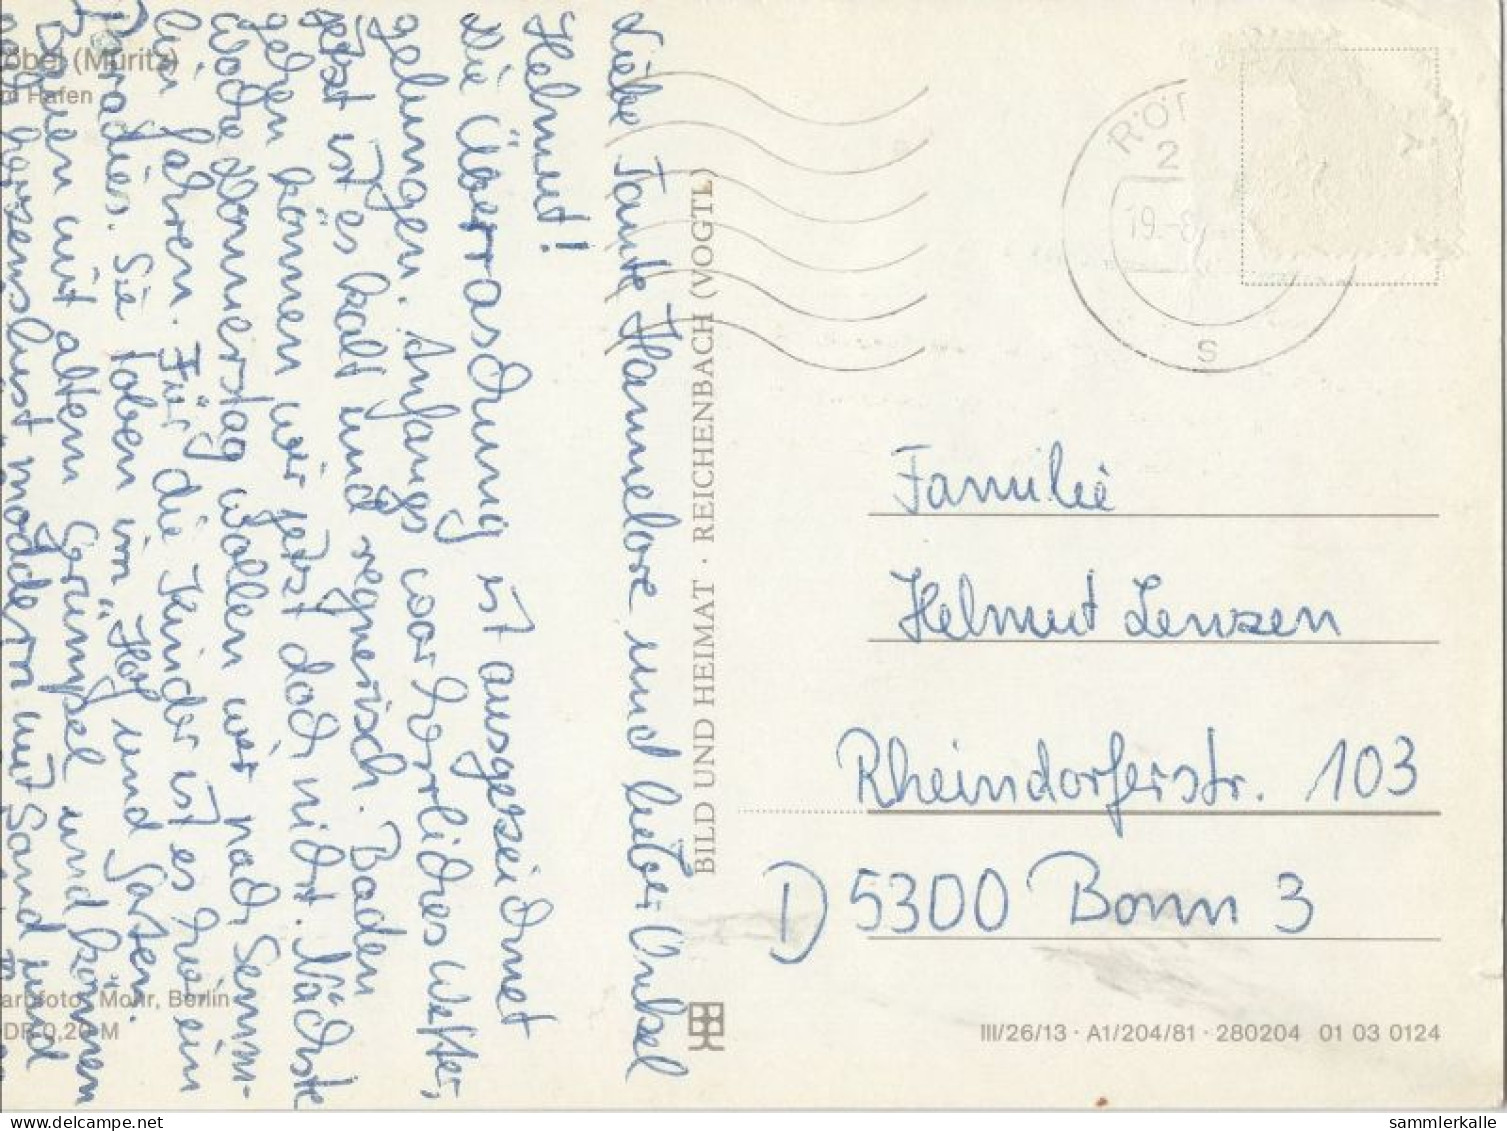 Liebe Tante Hannelore und lieber Onkel
Helmut!
Die Überraschung ist ausgezeichnet
gelungen. Anfangs war herrliches Wetter,
jetzt ist es kalt und regnerisch. Baden
gehen können wir jetzt doch nicht. Nächste
Woche Donnerstag wollen wir nach Semm-
lin fahren. Für die Kinder ist es hie ein
Paradies. Sie toben im Hof und Garten.
Bauen mit altem Grümpel und können
nach herzenslust moddern mit Sand und
öbel (Müritz)
m Hafen
arbfoto: Mohr, Berlin
DDR 0,20 M
BILD UND HEIMAT · REICHENBACH (VOGTL)
RÖ
2
19.-8
s
Familie
Helmut Lenzen
Rheindorferstr. 103
D 5300 Bonn 3
III/26/13 · A1/204/81 · 280204 01 03 0124
sammlerkalle